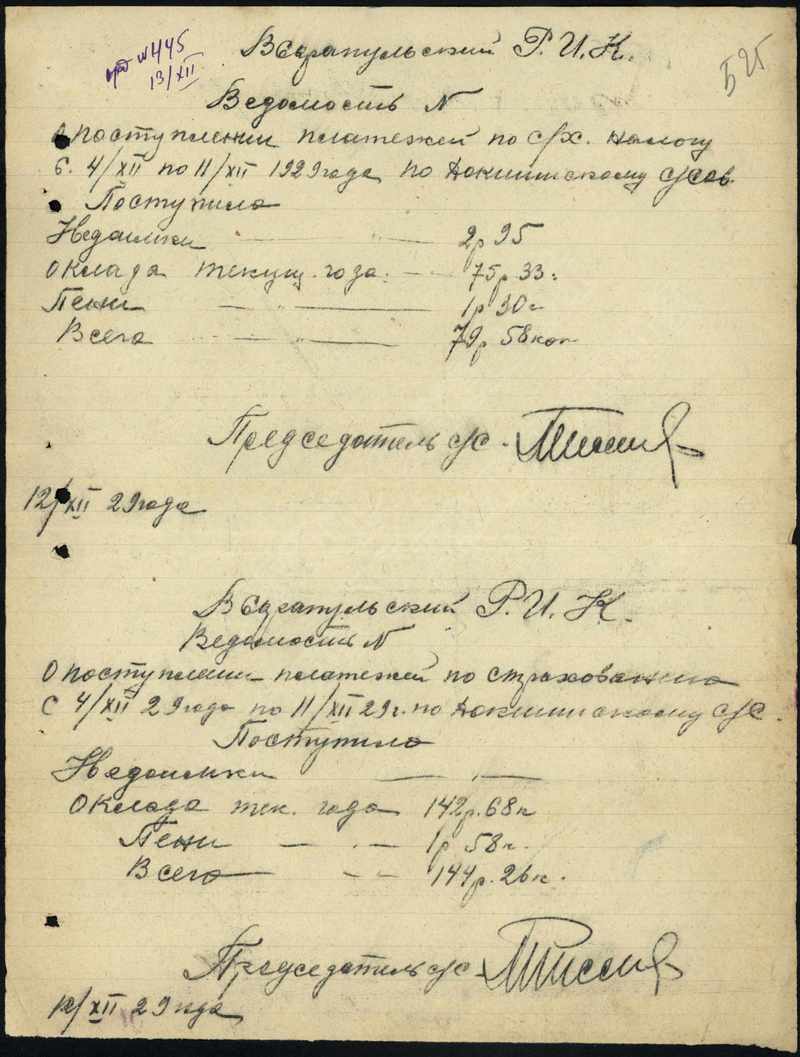 №445
13/XII
525
В Сарапульский Р.И.К.
Ведомость №
О поступлении платежей по с/х. налогу
с. 4/XII по 11/XII 1929 года, по Докшинскому с/сов.
Поступило
Недоимки — 2р 95
Оклада текущ. года. — 75р 33к
Пени — 1р 30к
Всего — 79р 58коп
Председатель с/с.
12/XII 29 года
В Сарапульский Р.И.К.
Ведомость №
О поступлении платежей по страхованию
С 4/XII 29 года по 11/XII 29г. по Докшинскому с/с.
Поступило
Недоимки — —
Оклада тек. года 142р. 68к
Пени — 1р 58к.
Всего — 144р. 26к.
Председатель с/с
12/XII 29 года